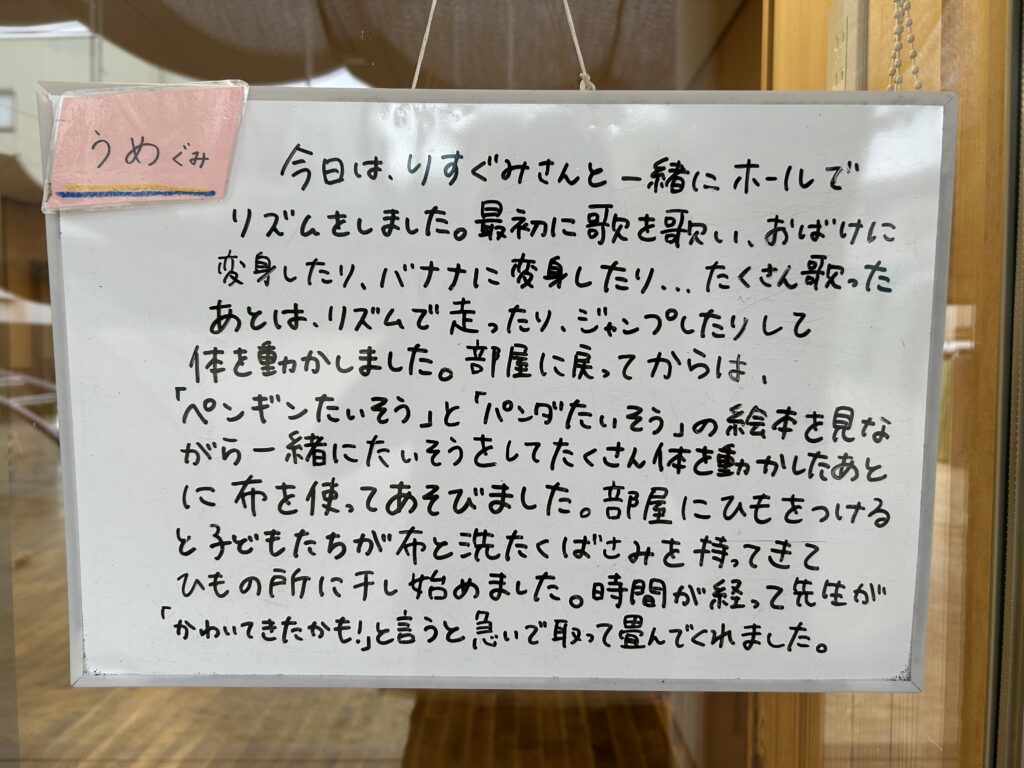 うめぐみ
今日は、りすぐみさんと一緒にホールで
リズムをしました。最初に歌を歌い、おばけに
変身したり、バナナに変身したり...たくさん歌った
あとは、リズムで走ったり、ジャンプしたりして
体を動かしました。部屋に戻ってからは、
「ペンギンたいそう」と「パンダたいそう」の絵本を見な
がら一緒にたいそうをしてたくさん体を動かしたあと
に布を使ってあそびました。部屋にひもをつける
と子どもたちが布と洗たくばさみを持ってきて
ひもの所に干し始めました。時間が経って先生が
「かわいてきたかも!」と言うと急いで取って畳んでくれました。